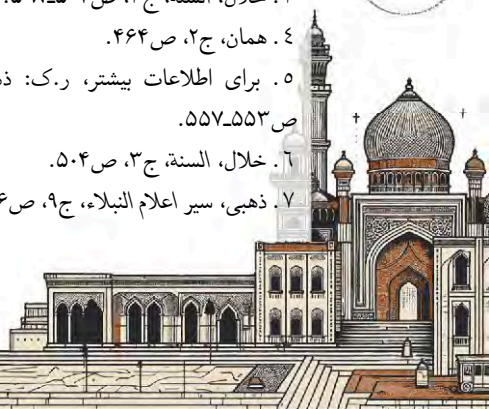 ٤. همان، ج۲، ص۴۶۴.
٥. برای اطلاعات بیشتر، ر.ک:
ص۵۵۳ـ۵۵۷.
٦. خلال، السنة، ج۳، ص۵۰۴.
٧. ذهبی، سیر اعلام النبلاء، ج۹،